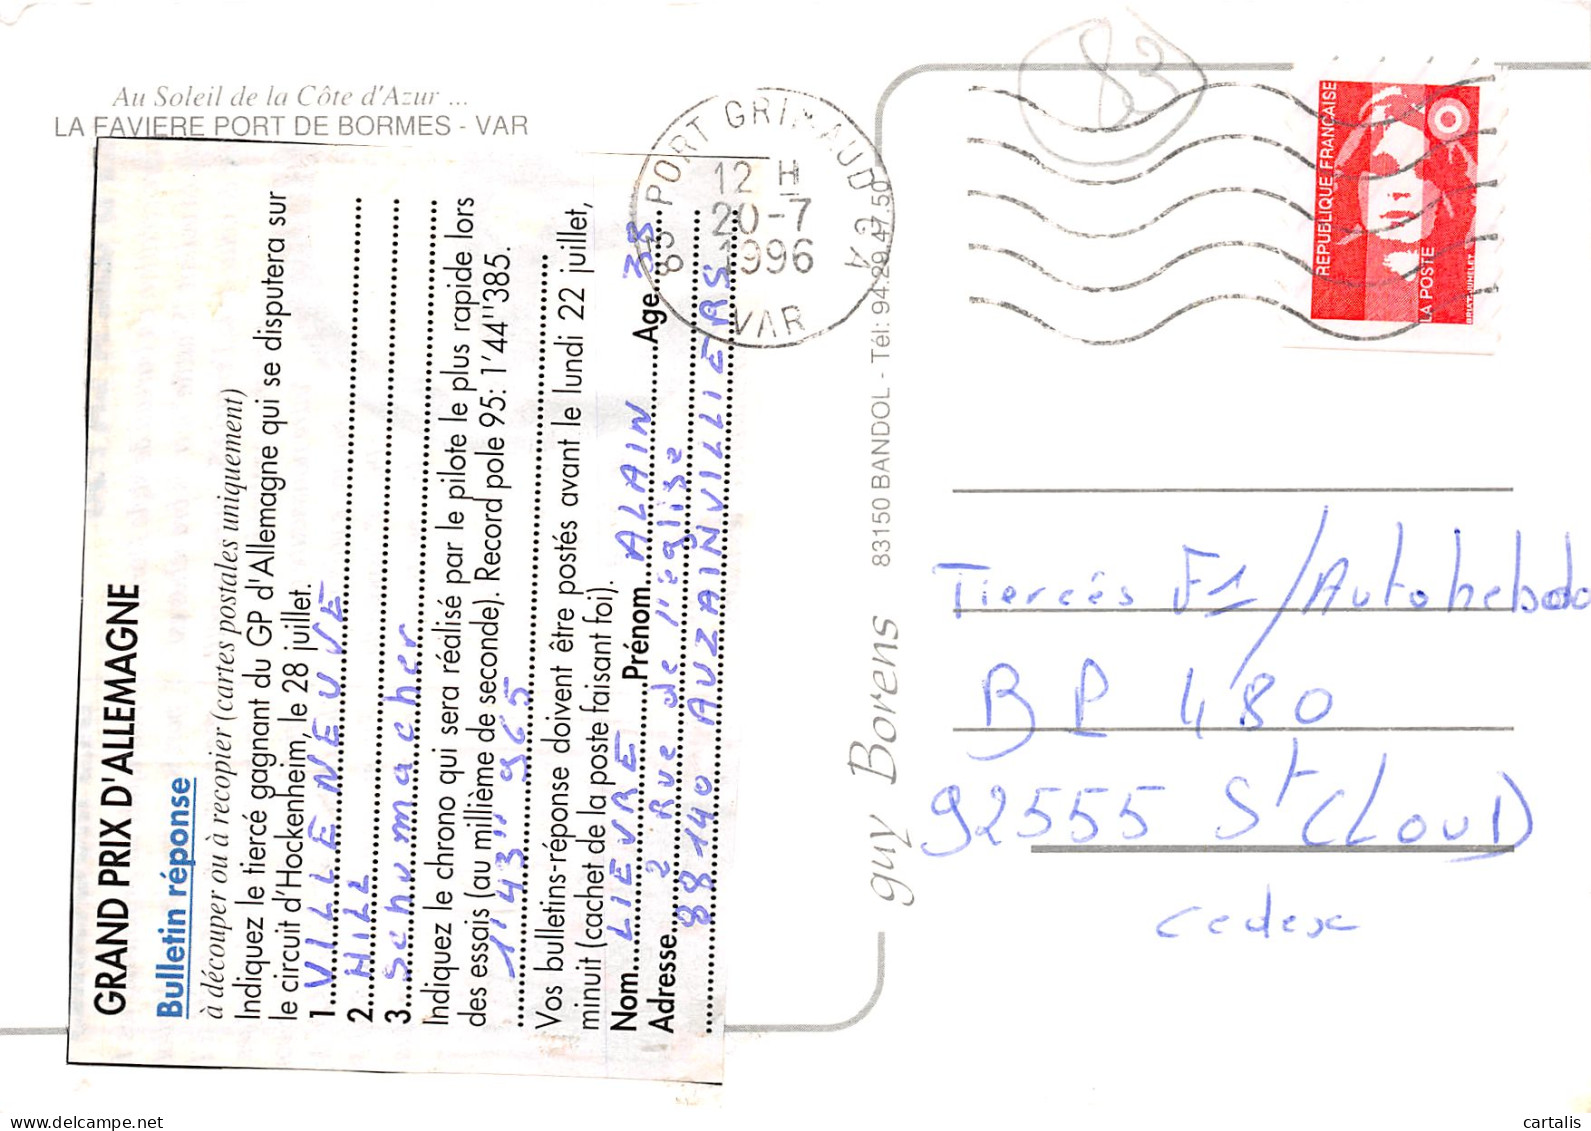 Au Soleil de la Côte d'Azur ...
LA FAVIERE PORT DE BORMES - VAR
GRAND PRIX D'ALLEMAGNE
Bulletin réponse
à découper ou à recopier (cartes postales uniquement)
Indiquez le tiercé gagnant du GP d'Allemagne qui se disputera sur
le circuit d'Hockenheim, le 28 juillet.
1. VILLENEUVE
2. HILL
3. Schumacher
Indiquez le chrono qui sera réalisé par le pilote le plus rapide lors
des essais (au millième de seconde). Record pole 95: 1'44''385.
1'43''965
Vos bulletins-réponse doivent être postés avant le lundi 22 juillet,
minuit (cachet de la poste faisant foi).
Nom LIEVRE Prénom ALAIN Age 38
Adresse 2 Rue de l'église
88140 AUZAINVILLIERS
83 PORT GRIMAUD A2
12 H
20-7
1996
VAR
83
REPUBLIQUE FRANÇAISE
LA POSTE
guy Borens 83150 BANDOL - Tél: 94.29.47.50
Tiercés F1/Autohebdo
BP 480
92555 St CLOUD
cedex
cartalis
delcampe.net